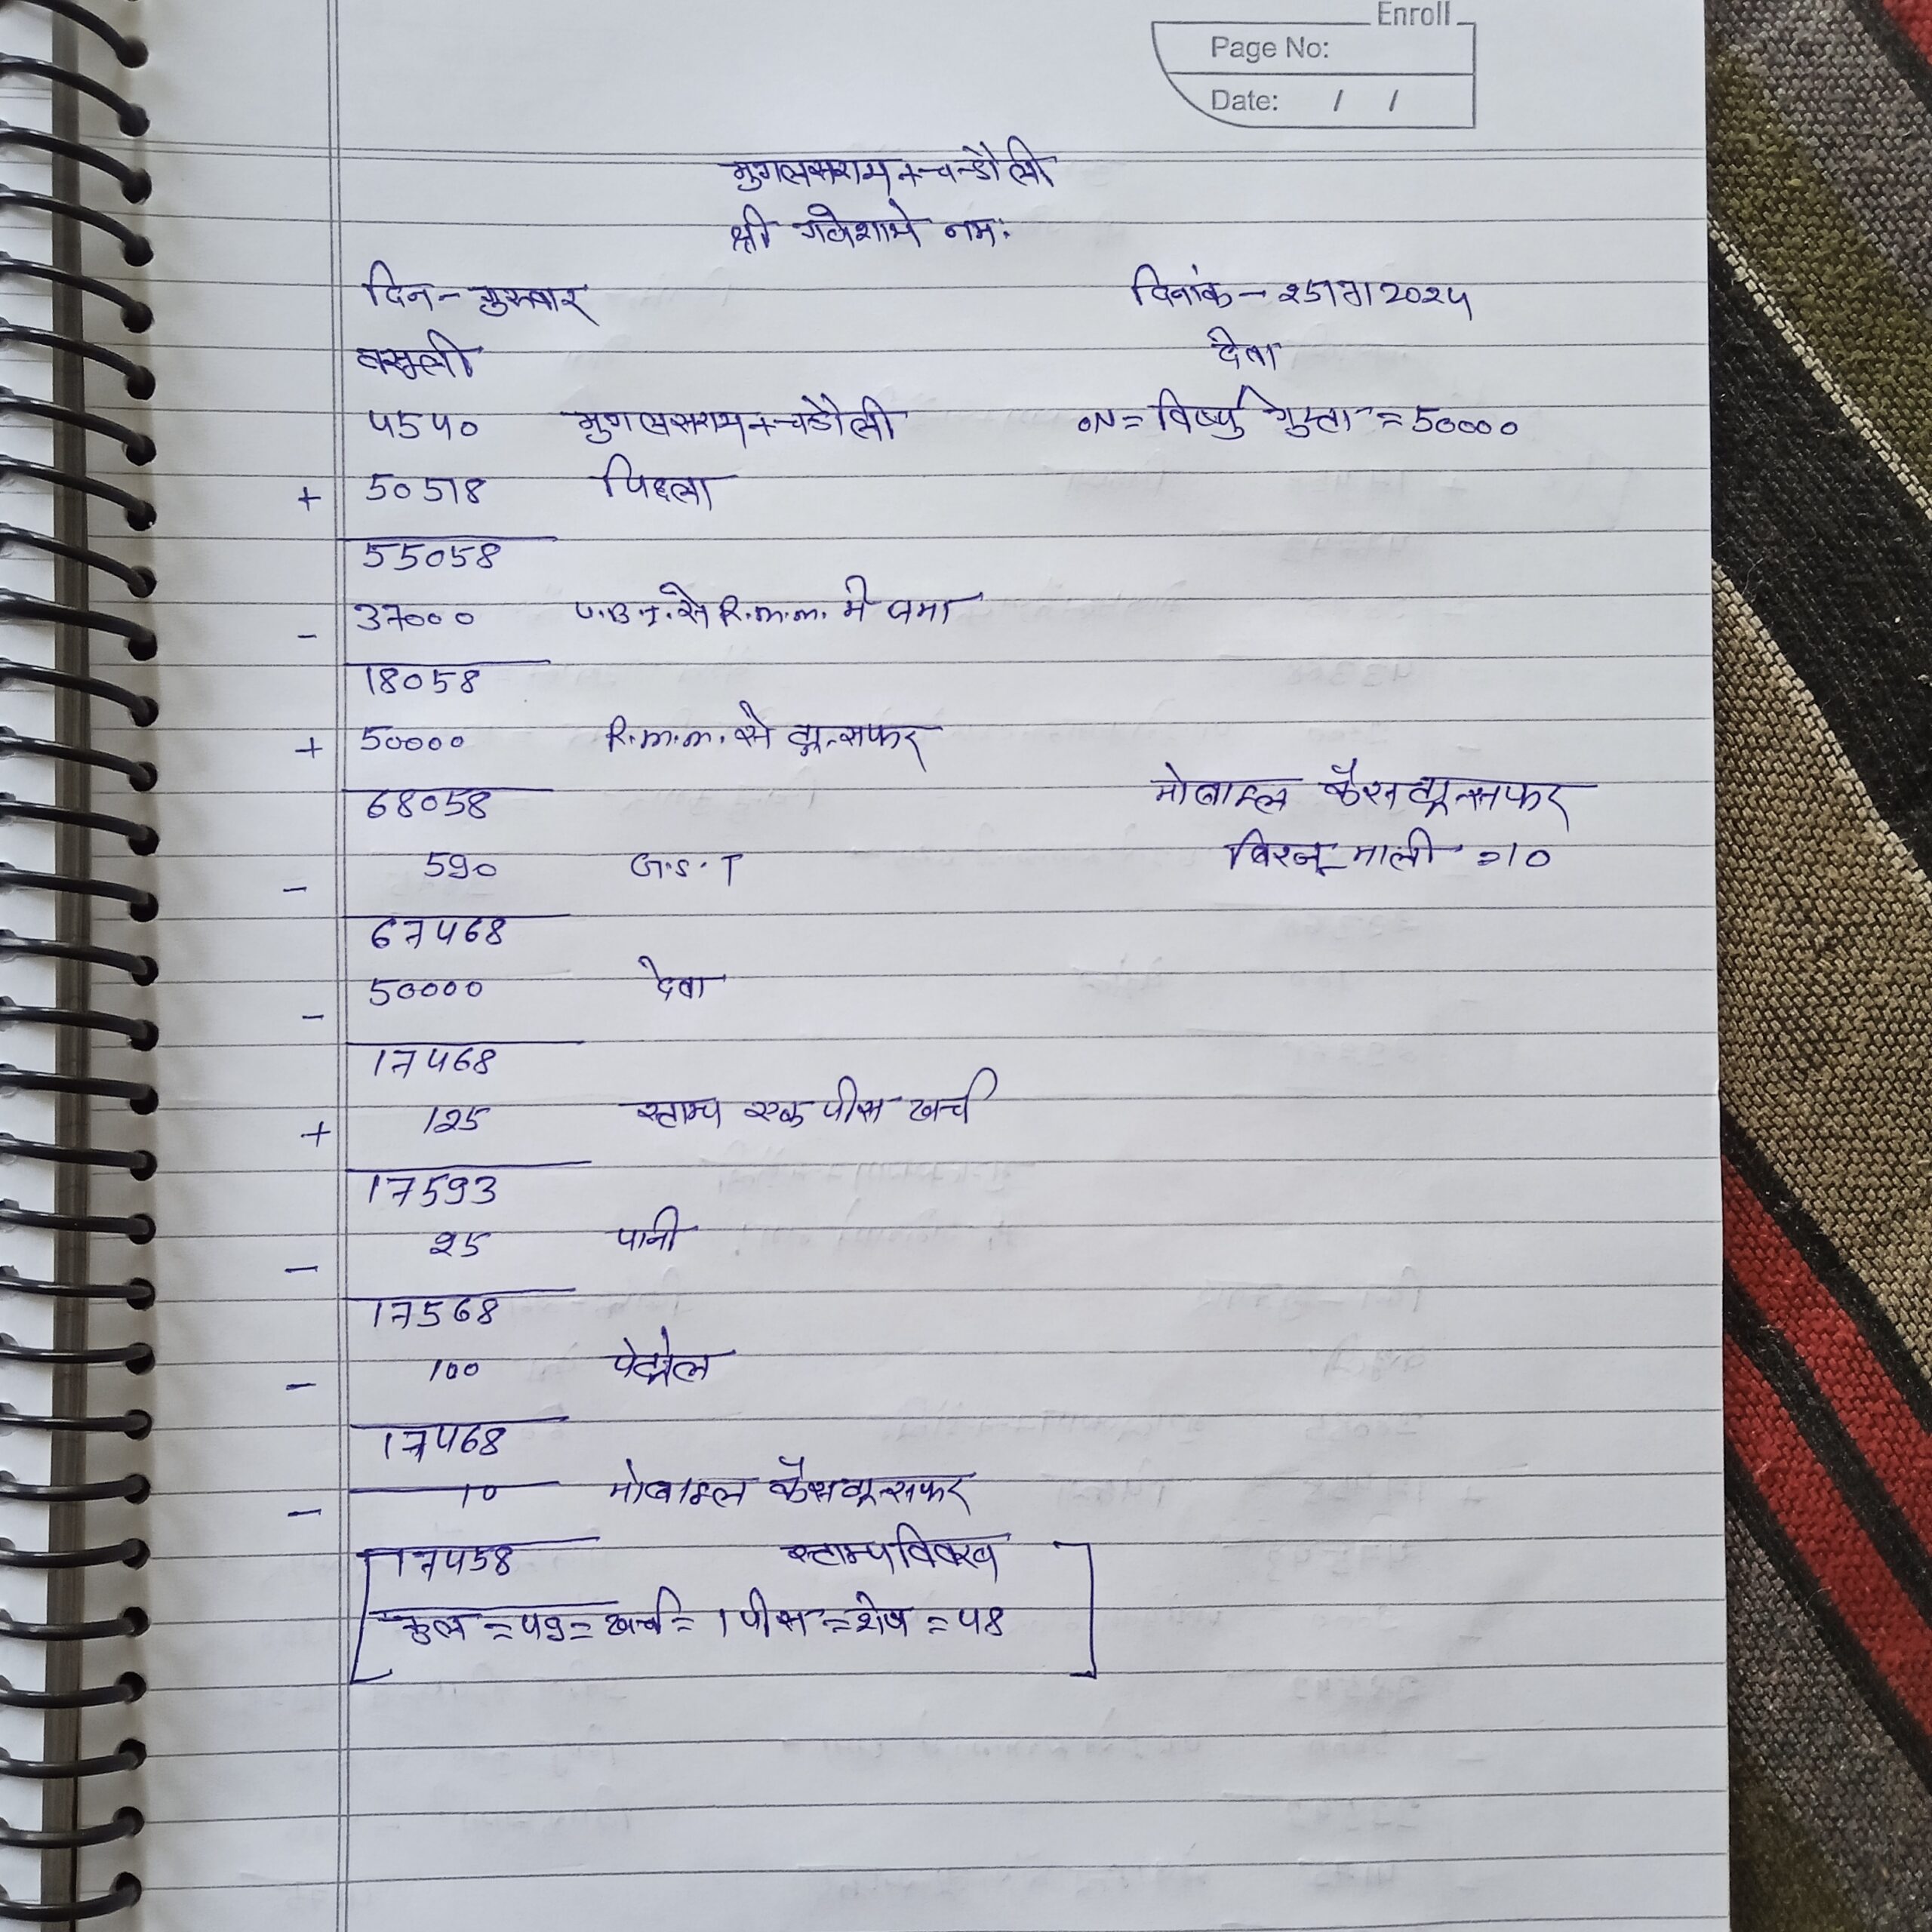 Enroll
Page No:
Date: / /
मुगलसराय + चन्दौली
श्री गणेशाये नमः
दिन - गुरुवार दिनांक - 25/7/2024
वसूली देवा
4540 मुगलसराय + चन्दौली ON = विष्णु गुप्ता = 50000
+ 50518 पिछला
55058
- 37000 U.B.I. से R.m.m. मे जमा
18058
+ 50000 R.m.m. से ट्रान्सफर
68058 मोबाइल कैसट्रान्सफर
- 590 G.S.T बिरजू माली = 10
67468
- 50000 देवा
17468
+ 125 स्टाम्प एक पीस खर्च
17593
- 25 पानी
17568
- 100 पेट्रोल
17468
- 10 मोबाइल कैसट्रान्सफर
17458 स्टाम्प विवरण
कुल = 49 = खर्च = 1 पीस = शेष = 48